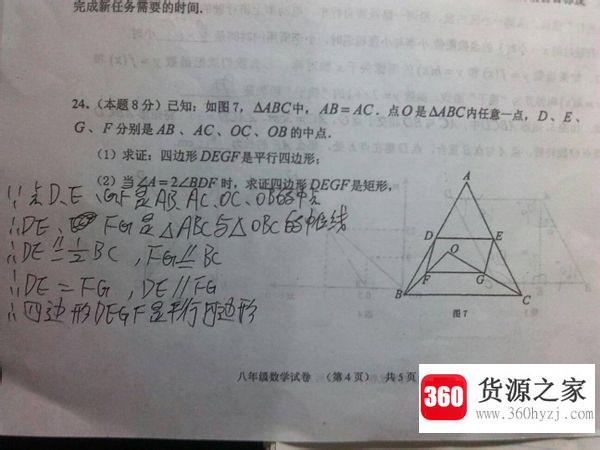 完成新任务需要的时间.
24.（本题8分）已知：如图7，△ABC中，AB＝AC．点O是△ABC内任意一点，D、E、
G、F分别是AB、AC、OC、OB的中点．
（1）求证：四边形DEGF是平行四边形；
（2）当∠A＝2∠BDF时，求证四边形DEGF是矩形，
∵点D、E、GF是AB、AC、OC、OB的中点
∴DE、FG是△ABC与△OBC的中位线
∴DE∥½BC，FG∥BC
∴DE＝FG，DE∥FG
∴四边形DEGF是平行四边形
A
D
E
O
F
G
B
C
图7
八年级数学试卷 （第4页） 共5页
360
货源之家
www.360hyzj.com